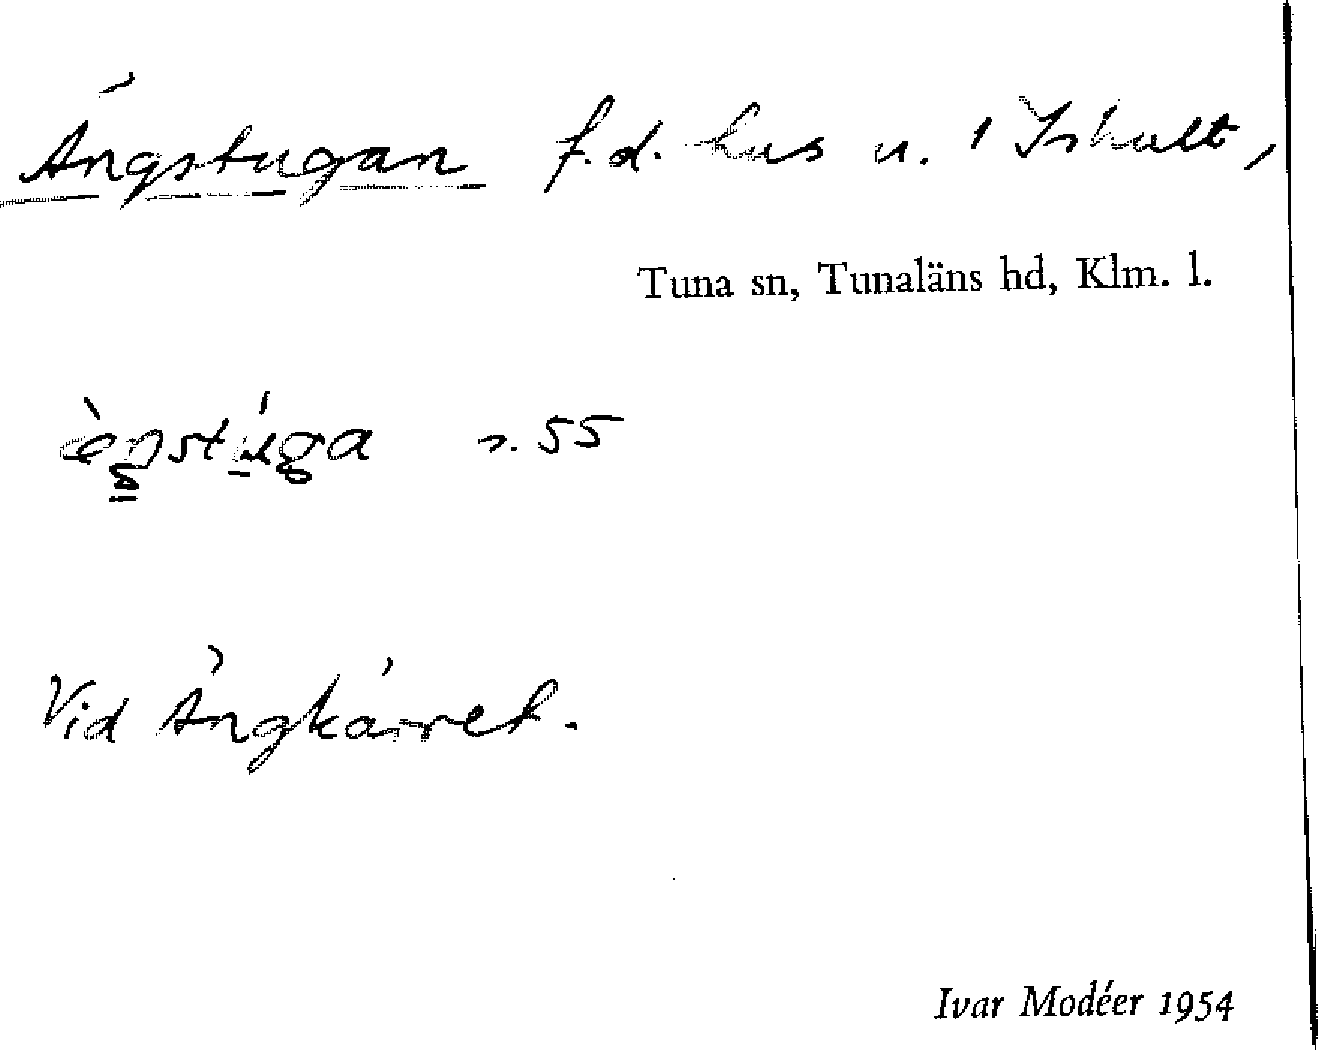 Ängstugan f.d. hus u. 1 Ishult,
Tuna sn, Tunaläns hd, Klm. l.
s. 55
Vid Ängkärret.
Ivar Modéer 1954